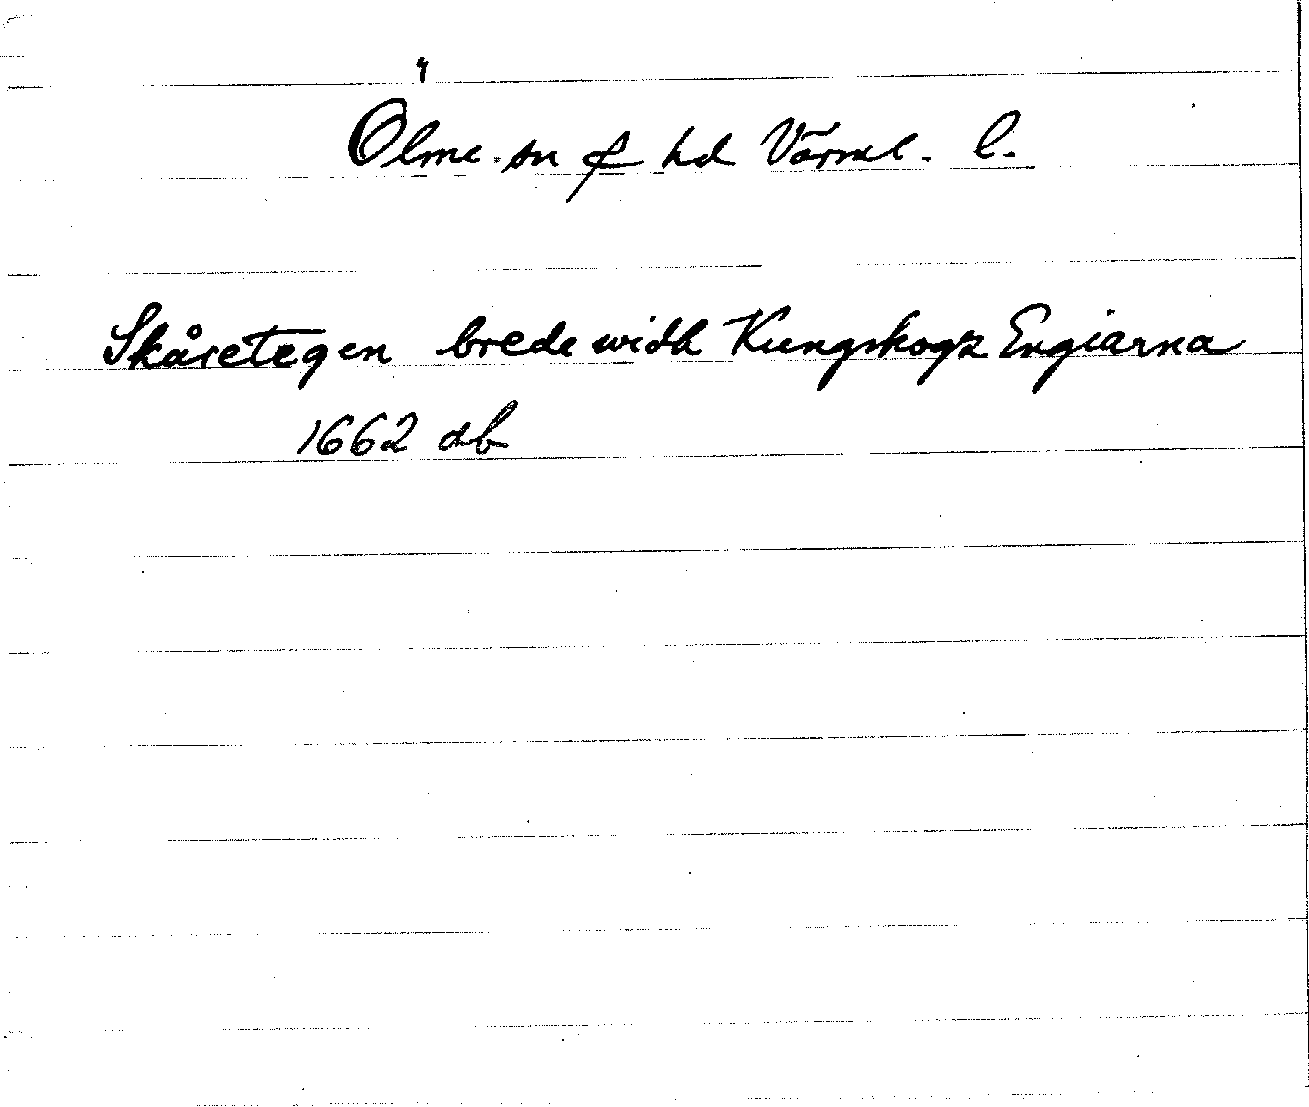 Ölme sn o hd Värml. l.
Skåretegen brede widh Kungskogz Engiarna
1662 db